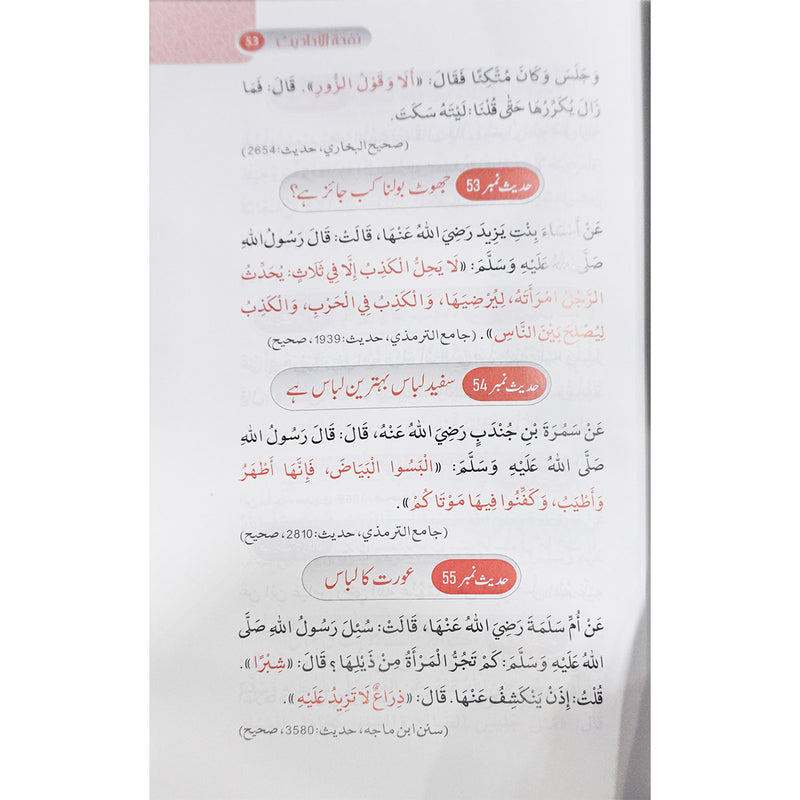 نفحة الاحاديث 53
وَجَلَسَ وَكَانَ مُتَّكِئًا فَقَالَ: «أَلَا وَقَوْلُ الزُّورِ». قَالَ: فَمَا
زَالَ يُكَرِّرُهَا حَتَّى قُلْنَا: لَيْتَهُ سَكَتَ.
(صحيح البخاري، حديث: 2654)
حدیث نمبر 53 جھوٹ بولنا کب جائز ہے؟
عَنْ أَسْمَاءَ بِنْتِ يَزِيدَ رَضِيَ اللهُ عَنْهَا، قَالَتْ: قَالَ رَسُولُ اللهِ
صَلَّى اللهُ عَلَيْهِ وَسَلَّمَ: «لَا يَحِلُّ الْكَذِبُ إِلَّا فِي ثَلَاثٍ: يُحَدِّثُ
الرَّجُلُ امْرَأَتَهُ، لِيُرْضِيَهَا، وَالْكَذِبُ فِي الْحَرْبِ، وَالْكَذِبُ
لِيُصْلِحَ بَيْنَ النَّاسِ». (جامع الترمذي، حديث: 1939، صحيح)
حدیث نمبر 54 سفید لباس بہترین لباس ہے
عَنْ سَمُرَةَ بْنِ جُنْدَبٍ رَضِيَ اللهُ عَنْهُ، قَالَ: قَالَ رَسُولُ اللهِ
صَلَّى اللهُ عَلَيْهِ وَسَلَّمَ: «الْبَسُوا الْبَيَاضَ، فَإِنَّهَا أَطْهَرُ
وَأَطْيَبُ، وَكَفِّنُوا فِيهَا مَوْتَاكُمْ».
(جامع الترمذي، حديث: 2810، صحيح)
حدیث نمبر 55 عورت کا لباس
عَنْ أُمِّ سَلَمَةَ رَضِيَ اللهُ عَنْهَا، قَالَتْ: سُئِلَ رَسُولُ اللهِ صَلَّى
اللهُ عَلَيْهِ وَسَلَّمَ: كَمْ تَجُرُّ الْمَرْأَةُ مِنْ ذَيْلِهَا؟ قَالَ: «شِبْرًا».
قُلْتُ: إِذَنْ يَنْكَشِفُ عَنْهَا. قَالَ: «ذِرَاعٌ لَا تَزِيدُ عَلَيْهِ».
(سنن ابن ماجه، حديث: 3580، صحيح)